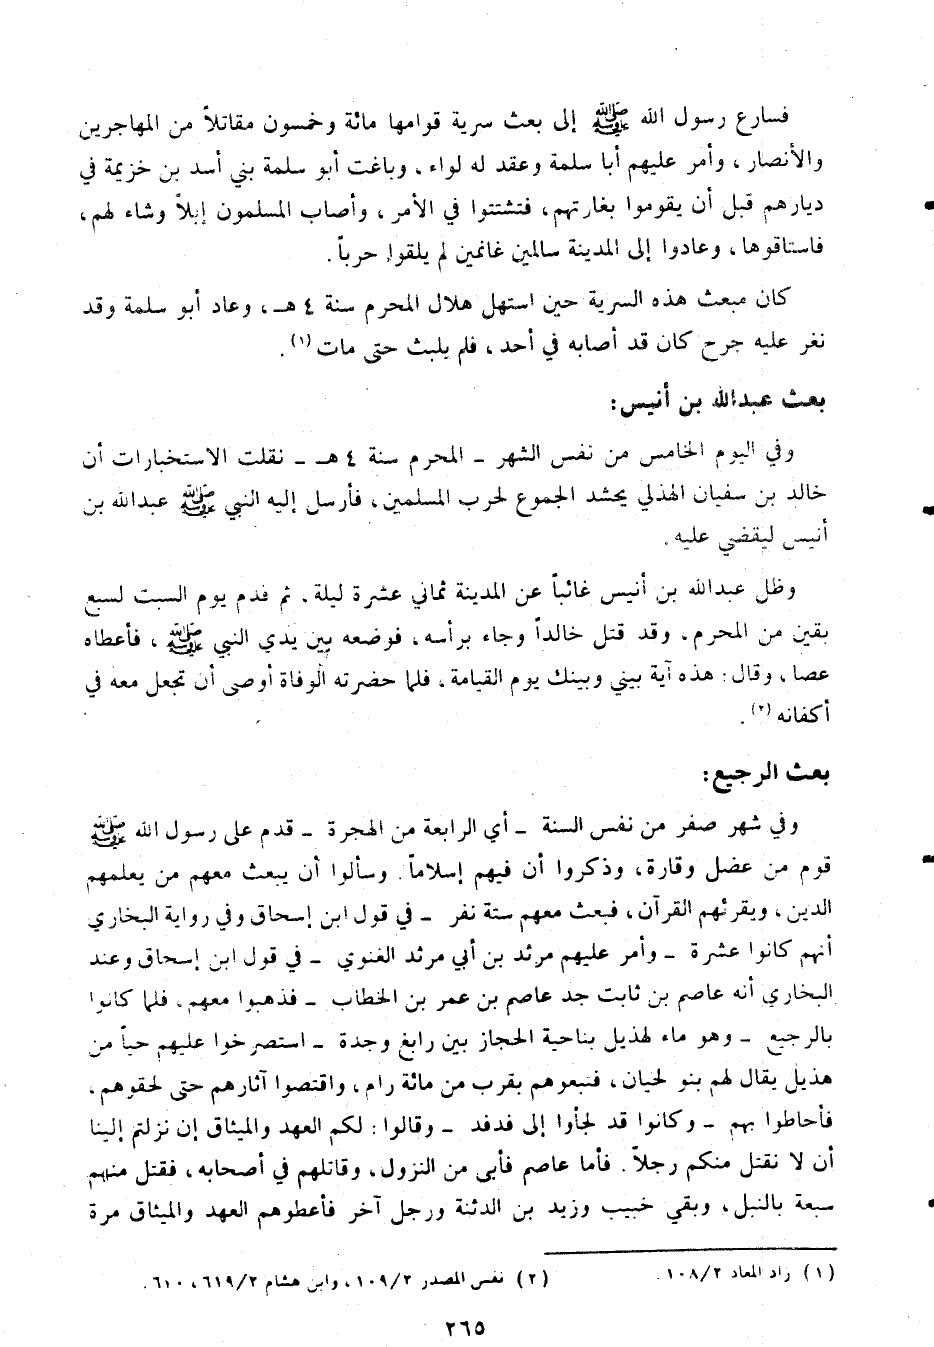 فسارع رسول الله ﷺ إلى بعث سرية قوامها مائة وخمسون مقاتلاً من المهاجرين
والأنصار ، وأمر عليهم أبا سلمة وعقد له لواء ، وباغت أبو سلمة بني أسد بن خزيمة في
ديارهم قبل أن يقوموا بغارتهم، فتشتتوا في الأمر ، وأصاب المسلمون إبلاً وشاء لهم،
فاستاقوها ، وعادوا إلى المدينة سالمين غانمين لم يلقوا حرباً .
كان مبعث هذه السرية حين استهل هلال المحرم سنة ٤ هـ ، وعاد أبو سلمة وقد
نغر عليه جرح كان قد أصابه في أحد ، فلم يلبث حتى مات (١) .
بعث عبدالله بن أنيس:
وفي اليوم الخامس من نفس الشهر - المحرم سنة ٤ هـ - نقلت الاستخبارات أن
خالد بن سفيان الهذلي يحشد الجموع لحرب المسلمين ، فأرسل إليه النبي ﷺ عبدالله بن
أنيس ليقضي عليه .
وظل عبدالله بن أنيس غائباً عن المدينة ثماني عشرة ليلة . ثم قدم يوم السبت لسبع
بقين من المحرم ، وقد قتل خالداً وجاء برأسه ، فوضعه بين يدي النبي ﷺ ، فأعطاه
عصا ، وقال : هذه آية بيني وبينك يوم القيامة ، فلما حضرته الوفاة أوصى أن تجعل معه في
أكفانه (٢) .
بعث الرجيع:
وفي شهر صفر من نفس السنة - أي الرابعة من الهجرة - قدم على رسول الله ﷺ
قوم من عضل وقارة ، وذكروا أن فيهم إسلاماً . وسألوا أن يبعث معهم من يعلمهم
الدين ، ويقرئهم القرآن ، فبعث معهم ستة نفر - في قول ابن إسحاق وفي رواية البخاري
أنهم كانوا عشرة - وأمر عليهم مرثد بن أبي مرثد الغنوي - في قول ابن إسحاق وعند
البخاري أنه عاصم بن ثابت جد عاصم بن عمر بن الخطاب - فذهبوا معهم ، فلما كانوا
بالرجيع - وهو ماء لهذيل بناحية الحجاز بين رابغ وجدة - استصرخوا عليهم حياً من
هذيل يقال لهم بنو لحيان ، فتبعوهم بقرب من مائة رام ، واقتصوا آثارهم حتى لحقوهم ،
فأحاطوا بهم - وكانوا قد لجأوا إلى فدفد - وقالوا : لكم العهد والميثاق إن نزلتم إلينا
أن لا نقتل منكم رجلاً . فأما عاصم فأبى من النزول ، وقاتلهم في أصحابه ، فقتل منهم
سبعة بالنبل ، وبقي خبيب وزيد بن الدثنة ورجل آخر فأعطوهم العهد والميثاق مرة
(١) زاد المعاد ١٠٨/٢ . (٢) نفس المصدر ١٠٩/٢ ، وابن هشام ٦١٩/٢ ، ٦٢٠ .
٢٦٥